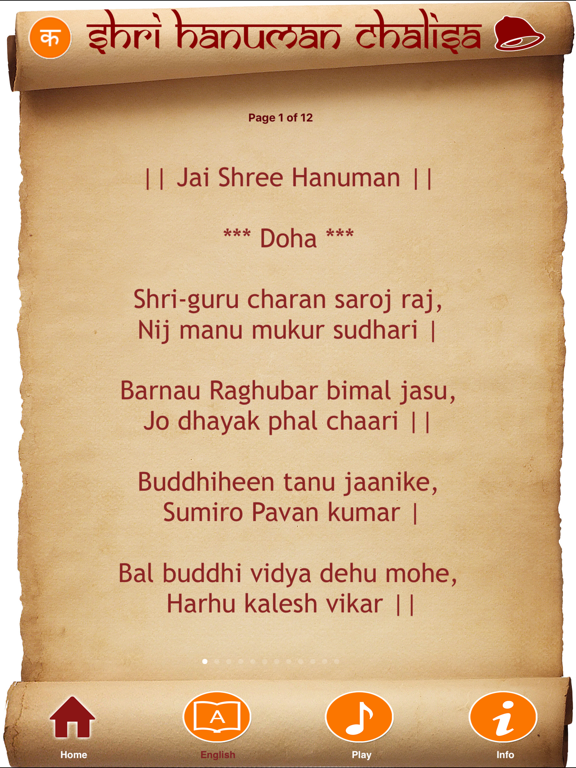 क
Shri Hanuman Chalisa
Page 1 of 12
|| Jai Shree Hanuman ||
*** Doha ***
Shri-guru charan saroj raj,
Nij manu mukur sudhari |
Barnau Raghubar bimal jasu,
Jo dhayak phal chaari ||
Buddhiheen tanu jaanike,
Sumiro Pavan kumar |
Bal buddhi vidya dehu mohe,
Harhu kalesh vikar ||
A
Home
English
Play
Info